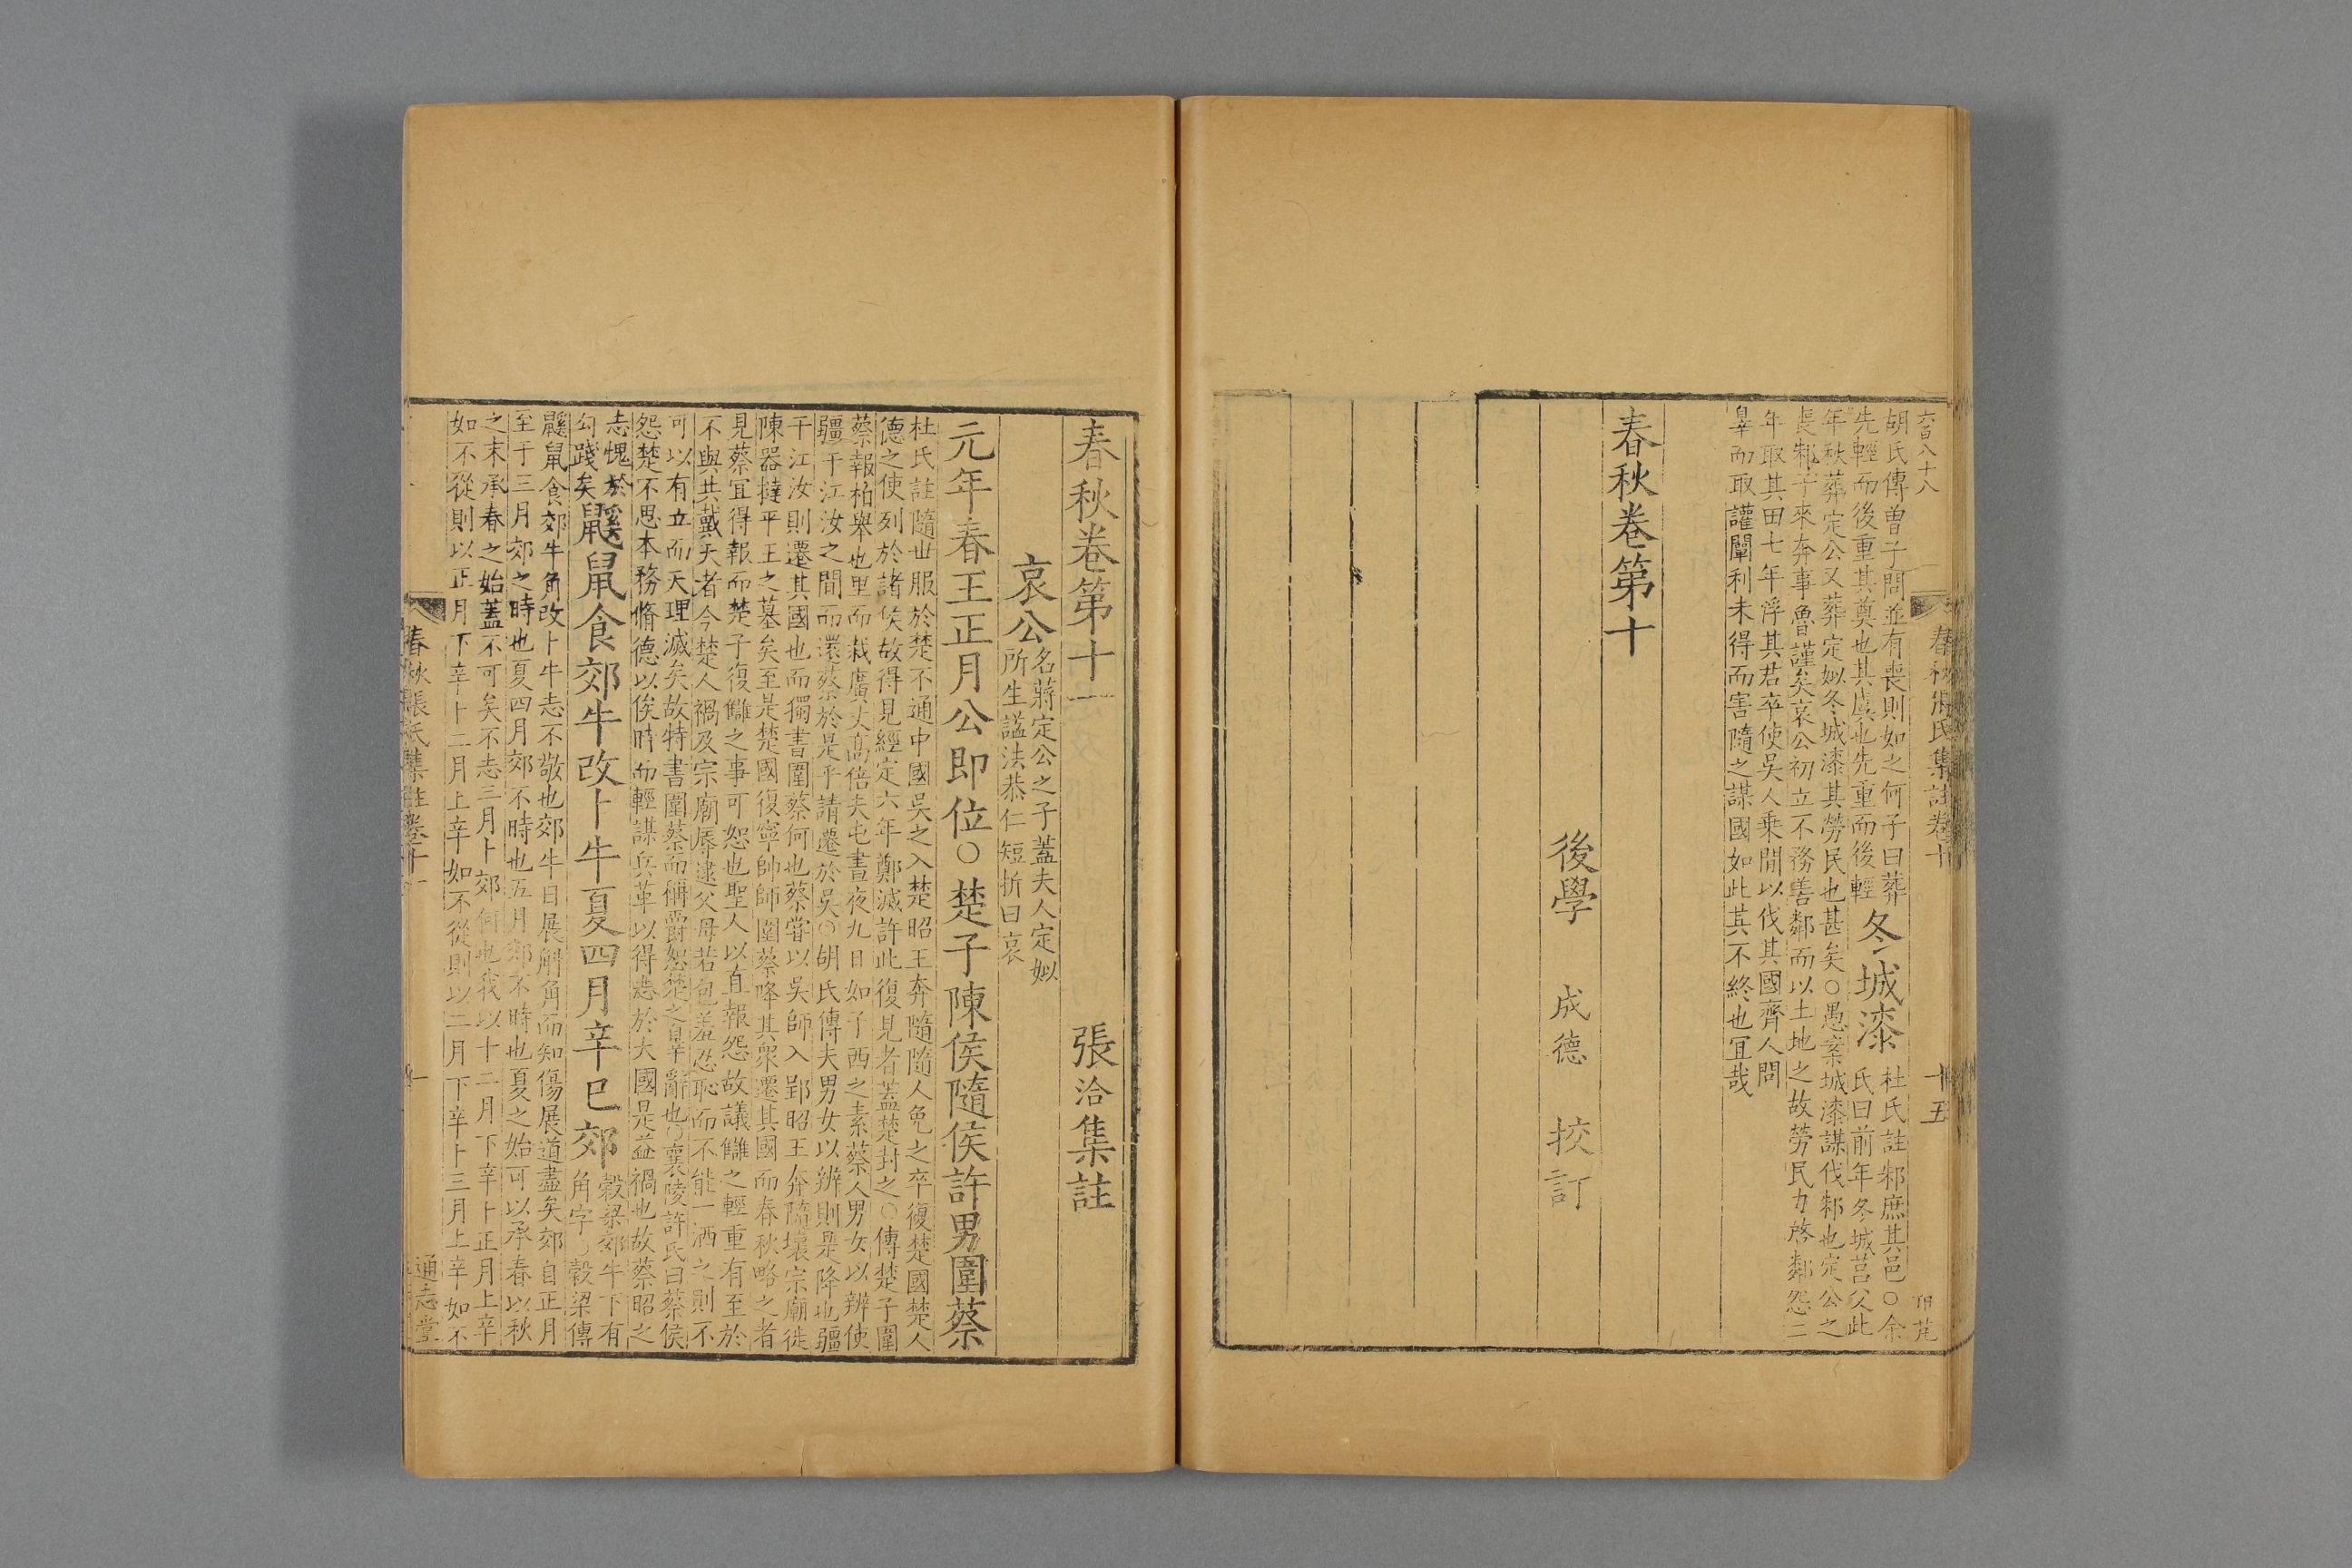 六百八十八
春秋張氏集註卷十
十五
胡氏傳曾子問並有喪則如之何子曰葬
先輕而後重其奠也其虞也先重而後輕
冬城漆
杜氏註邾庶其邑○余
氏曰前年冬城莒父此
年秋葬定公又葬定姒冬城漆其勞民也甚矣○愚案城漆謀伐邾也定公之
喪邾子來奔事魯謹矣哀公初立不務善鄰而以土地之故勞民力啓鄰怨二
年取其田七年浮其君卒使吳人乗間以伐其國齊人問
辠而取讙闡利未得而害隨之謀國如此其不終也宜哉
春秋卷第十
後學 成德 挍訂
春秋卷第十一
張洽集註
哀公
名蔣定公之子蓋夫人定姒
所生諡法恭仁短折曰哀
元年春王正月公即位○楚子陳侯隨侯許男圍蔡
杜氏註隨世服於楚不通中國吳之入楚昭王奔隨隨人免之卒復楚國楚人
德之使列於諸侯故得見經定六年鄭滅許此復見者蓋楚封之○傳楚子圍
蔡報柏舉也里而栽廣丈高倍夫屯晝夜九日如子西之素蔡人男女以辨使
疆于江汝之間而還蔡於是乎請遷於吳○胡氏傳夫男女以辨則是降也疆
于江汝則遷其國也而獨書圍蔡何也蔡甞以吳師入郢昭王奔隨壞宗廟徙
陳器撻平王之墓矣至是楚國復寧帥師圍蔡降其衆遷其國而春秋略之者
見蔡宜得報而楚子復讎之事可恕也聖人以直報怨故議讎之輕重有至於
不與共戴天者今楚人禍及宗廟辱逮父母若包羞忍恥而不能一洒之則不
可以有立而天理滅矣故特書圍蔡而稱爵恕楚之辠辭也○襄陵許氏曰蔡侯
怨楚不思本務脩德以俟時而輕謀兵革以得志於大國是益禍也故蔡昭之
志愧於
勾踐矣
鼷鼠食郊牛改卜牛夏四月辛巳郊
穀梁郊牛下有
角字○穀梁傳
鼷鼠食郊牛角改卜牛志不敬也郊牛日展斛角而知傷展道盡矣郊自正月
至于三月郊之時也夏四月郊不時也五月郊不時也夏之始可以承春以秋
之末承春之始蓋不可矣不志三月卜郊何也我以十二月下辛卜正月上辛
如不從則以正月下辛卜二月上辛如不從則以二月下辛卜三月上辛如不
春秋張氏集註卷十一
一
通志堂